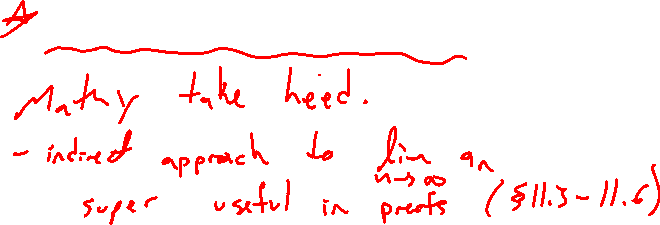 A
Mathy take heed.
- indirect approach to lim n→∞ an
super useful in proofs (§11.3-11.6)